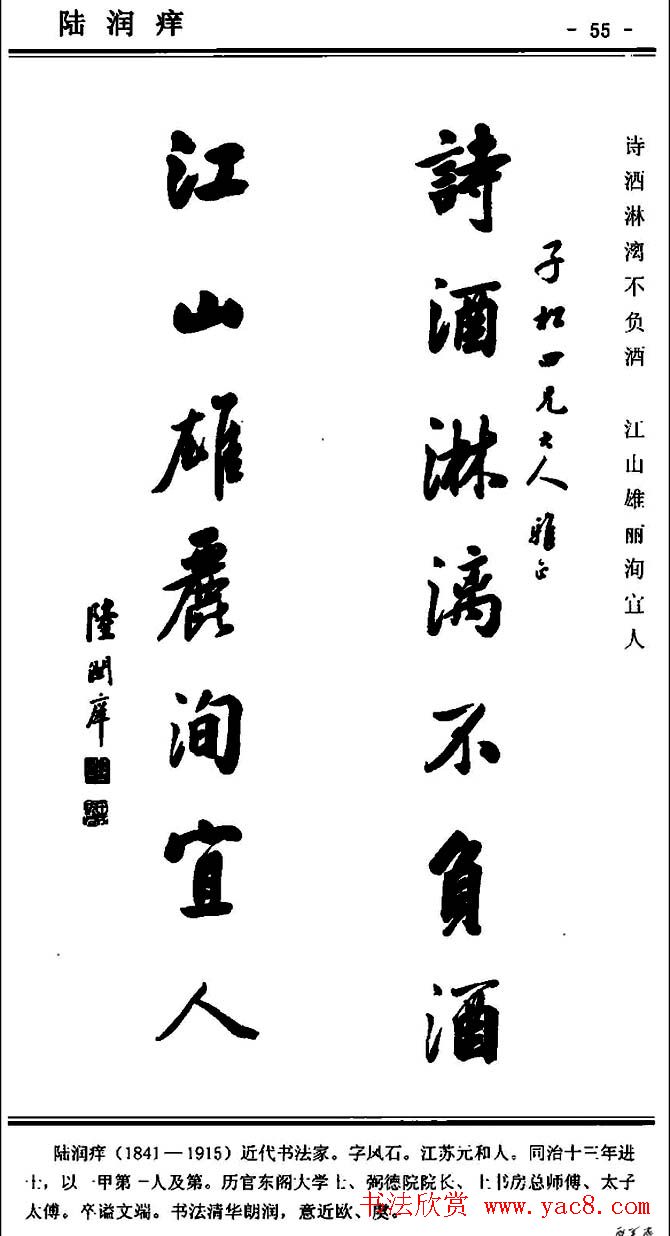 陆润痒
- 55 -
诗洒淋漓不负酒 江山雄丽洵宜人
子松四兄大人雅正
詩酒淋漓不負酒
江山雄麗洵宜人
陸潤庠
陆润痒（1841—1915）近代书法家。字凤石。江苏元和人。同治十三年进
士，以一甲第一人及第。历官东阁大学士、弼德院院长、上书房总师傅、太子
太傅。卒谥文端。书法清华朗润，意近欧、虞。
书法欣赏 www.yac8.com